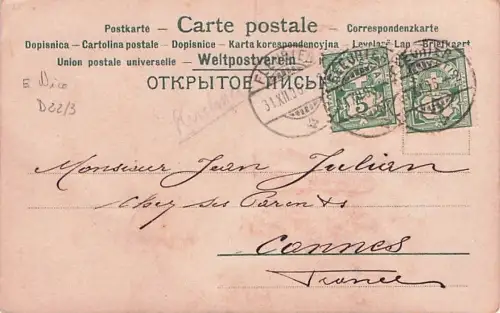 Postkarte - Carte postale - Correspondenzkarte
Dopisnica - Cartolina postale - Dopisnice - Karta korespondencyjna - Levelező Lap - Briefkaart
Union postale universelle - Weltpostverein
ОТКРЫТОЕ ПИСЬ
D22/3
31.XII.
5
Monsieur Jean Julian
Chez ses Parents
Cannes
France